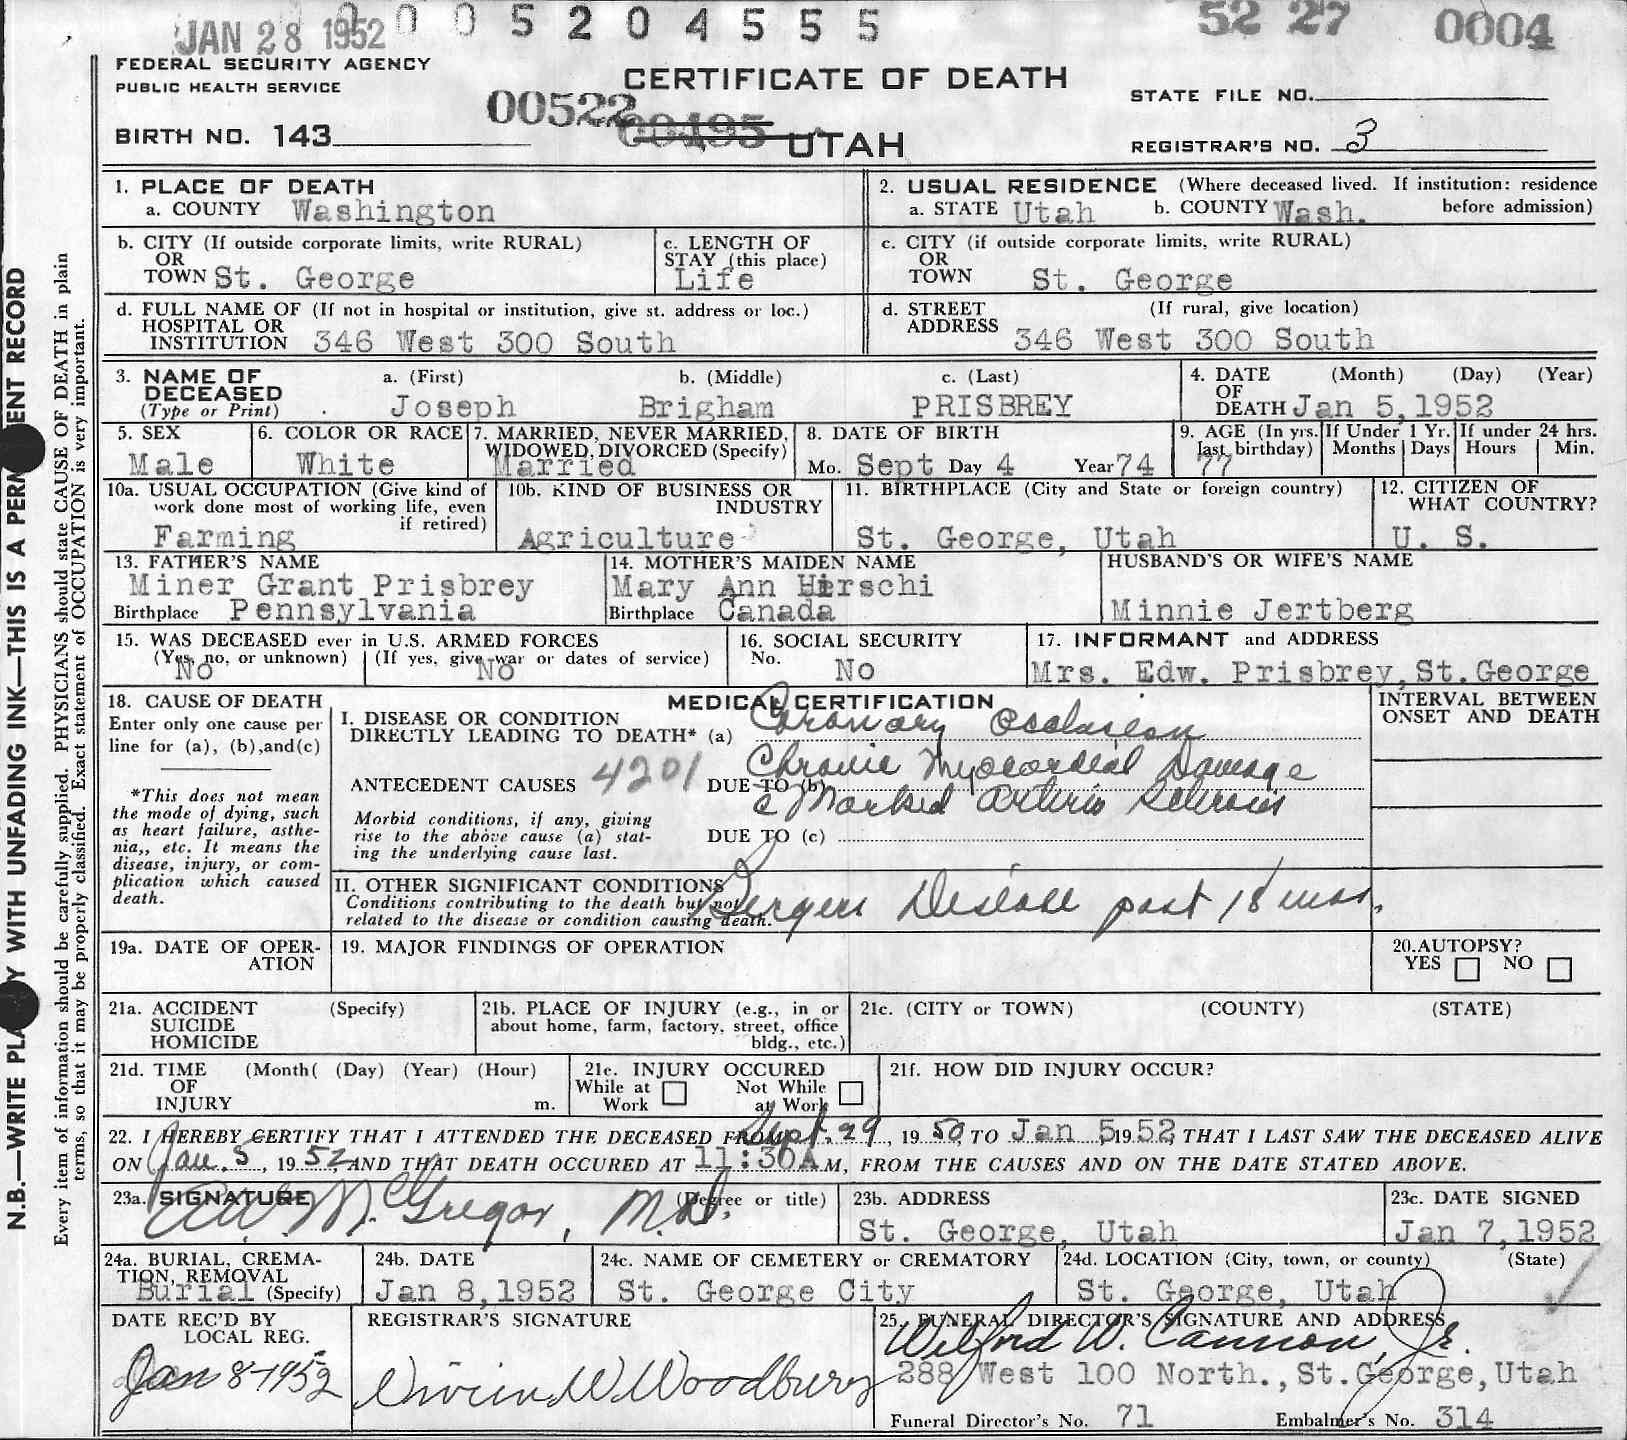 JAN 28 1952 0005204555 52 27 0004
FEDERAL SECURITY AGENCY
PUBLIC HEALTH SERVICE
CERTIFICATE OF DEATH
STATE FILE NO.
00522 00495
BIRTH NO. 143
UTAH
REGISTRAR'S NO. 3
1. PLACE OF DEATH
a. COUNTY Washington
2. USUAL RESIDENCE (Where deceased lived. If institution: residence before admission)
a. STATE Utah b. COUNTY Wash.
b. CITY (If outside corporate limits, write RURAL)
OR
TOWN St. George
c. LENGTH OF
STAY (this place)
Life
c. CITY (if outside corporate limits, write RURAL)
OR
TOWN St. George
d. FULL NAME OF (If not in hospital or institution, give st. address or loc.)
HOSPITAL OR
INSTITUTION 346 West 300 South
d. STREET (If rural, give location)
ADDRESS 346 West 300 South
3. NAME OF
DECEASED
(Type or Print)
a. (First) b. (Middle) c. (Last)
Joseph Brigham PRISBREY
4. DATE (Month) (Day) (Year)
OF
DEATH Jan 5, 1952
5. SEX
Male
6. COLOR OR RACE
White
7. MARRIED, NEVER MARRIED,
WIDOWED, DIVORCED (Specify)
Married
8. DATE OF BIRTH
Mo. Sept Day 4 Year 74
9. AGE (In yrs. last birthday)
77
If Under 1 Yr.
Months Days
If under 24 hrs.
Hours Min.
10a. USUAL OCCUPATION (Give kind of
work done most of working life, even
if retired)
Farming
10b. KIND OF BUSINESS OR
INDUSTRY
Agriculture
11. BIRTHPLACE (City and State or foreign country)
St. George, Utah
12. CITIZEN OF
WHAT COUNTRY?
U. S.
13. FATHER'S NAME
Miner Grant Prisbrey
Birthplace Pennsylvania
14. MOTHER'S MAIDEN NAME
Mary Ann Hirschi
Birthplace Canada
HUSBAND'S OR WIFE'S NAME
Minnie Jertberg
15. WAS DECEASED ever in U.S. ARMED FORCES
(Yes, no, or unknown) (If yes, give war or dates of service)
No No
16. SOCIAL SECURITY
No.
No
17. INFORMANT and ADDRESS
Mrs. Edw. Prisbrey, St.George
18. CAUSE OF DEATH
Enter only one cause per
line for (a), (b),and(c)
*This does not mean
the mode of dying, such
as heart failure, asthe-
nia,, etc. It means the
disease, injury, or com-
plication which caused
death.
MEDICAL CERTIFICATION
I. DISEASE OR CONDITION
DIRECTLY LEADING TO DEATH* (a) Coronary Occlusion
ANTECEDENT CAUSES 4201
DUE TO (b) Chronic Myocardial Damage
c Marked Arterio Sclerosis
Morbid conditions, if any, giving
rise to the above cause (a) stat-
ing the underlying cause last.
DUE TO (c)
II. OTHER SIGNIFICANT CONDITIONS
Conditions contributing to the death but not
related to the disease or condition causing death.
Bergers Disease past 18 mos.
INTERVAL BETWEEN
ONSET AND DEATH
19a. DATE OF OPER-
ATION
19. MAJOR FINDINGS OF OPERATION
20.AUTOPSY?
YES NO
21a. ACCIDENT (Specify)
SUICIDE
HOMICIDE
21b. PLACE OF INJURY (e.g., in or
about home, farm, factory, street, office
bldg., etc.)
21c. (CITY or TOWN) (COUNTY) (STATE)
21d. TIME (Month( (Day) (Year) (Hour)
OF
INJURY m.
21e. INJURY OCCURED
While at Work Not While at Work
21f. HOW DID INJURY OCCUR?
22. I HEREBY CERTIFY THAT I ATTENDED THE DECEASED FROM Sept. 29, 19 50 TO Jan 5 19 52, THAT I LAST SAW THE DECEASED ALIVE
ON Jan. 5, 19 52 AND THAT DEATH OCCURED AT 11:30A M, FROM THE CAUSES AND ON THE DATE STATED ABOVE.
23a. SIGNATURE (Degree or title)
A.W. McGregor, M.D.
23b. ADDRESS
St. George, Utah
23c. DATE SIGNED
Jan 7, 1952
24a. BURIAL, CREMA-
TION, REMOVAL
Burial (Specify)
24b. DATE
Jan 8, 1952
24c. NAME OF CEMETERY or CREMATORY
St. George City
24d. LOCATION (City, town, or county) (State)
St. George, Utah
DATE REC'D BY
LOCAL REG.
Jan 8-1952
REGISTRAR'S SIGNATURE
Vivian W. Woodbury
25. FUNERAL DIRECTOR'S SIGNATURE AND ADDRESS
Wilford W. Cannon, Jr.
288 West 100 North., St.George, Utah
Funeral Director's No. 71 Embalmer's No. 314
N.B.—WRITE PLA Y WITH UNFADING INK—THIS IS A PERM ENT RECORD
Every item of information should be carefully supplied. PHYSICIANS should state CAUSE OF DEATH in plain
terms, so that it may be properly classified. Exact statement of OCCUPATION is very important.